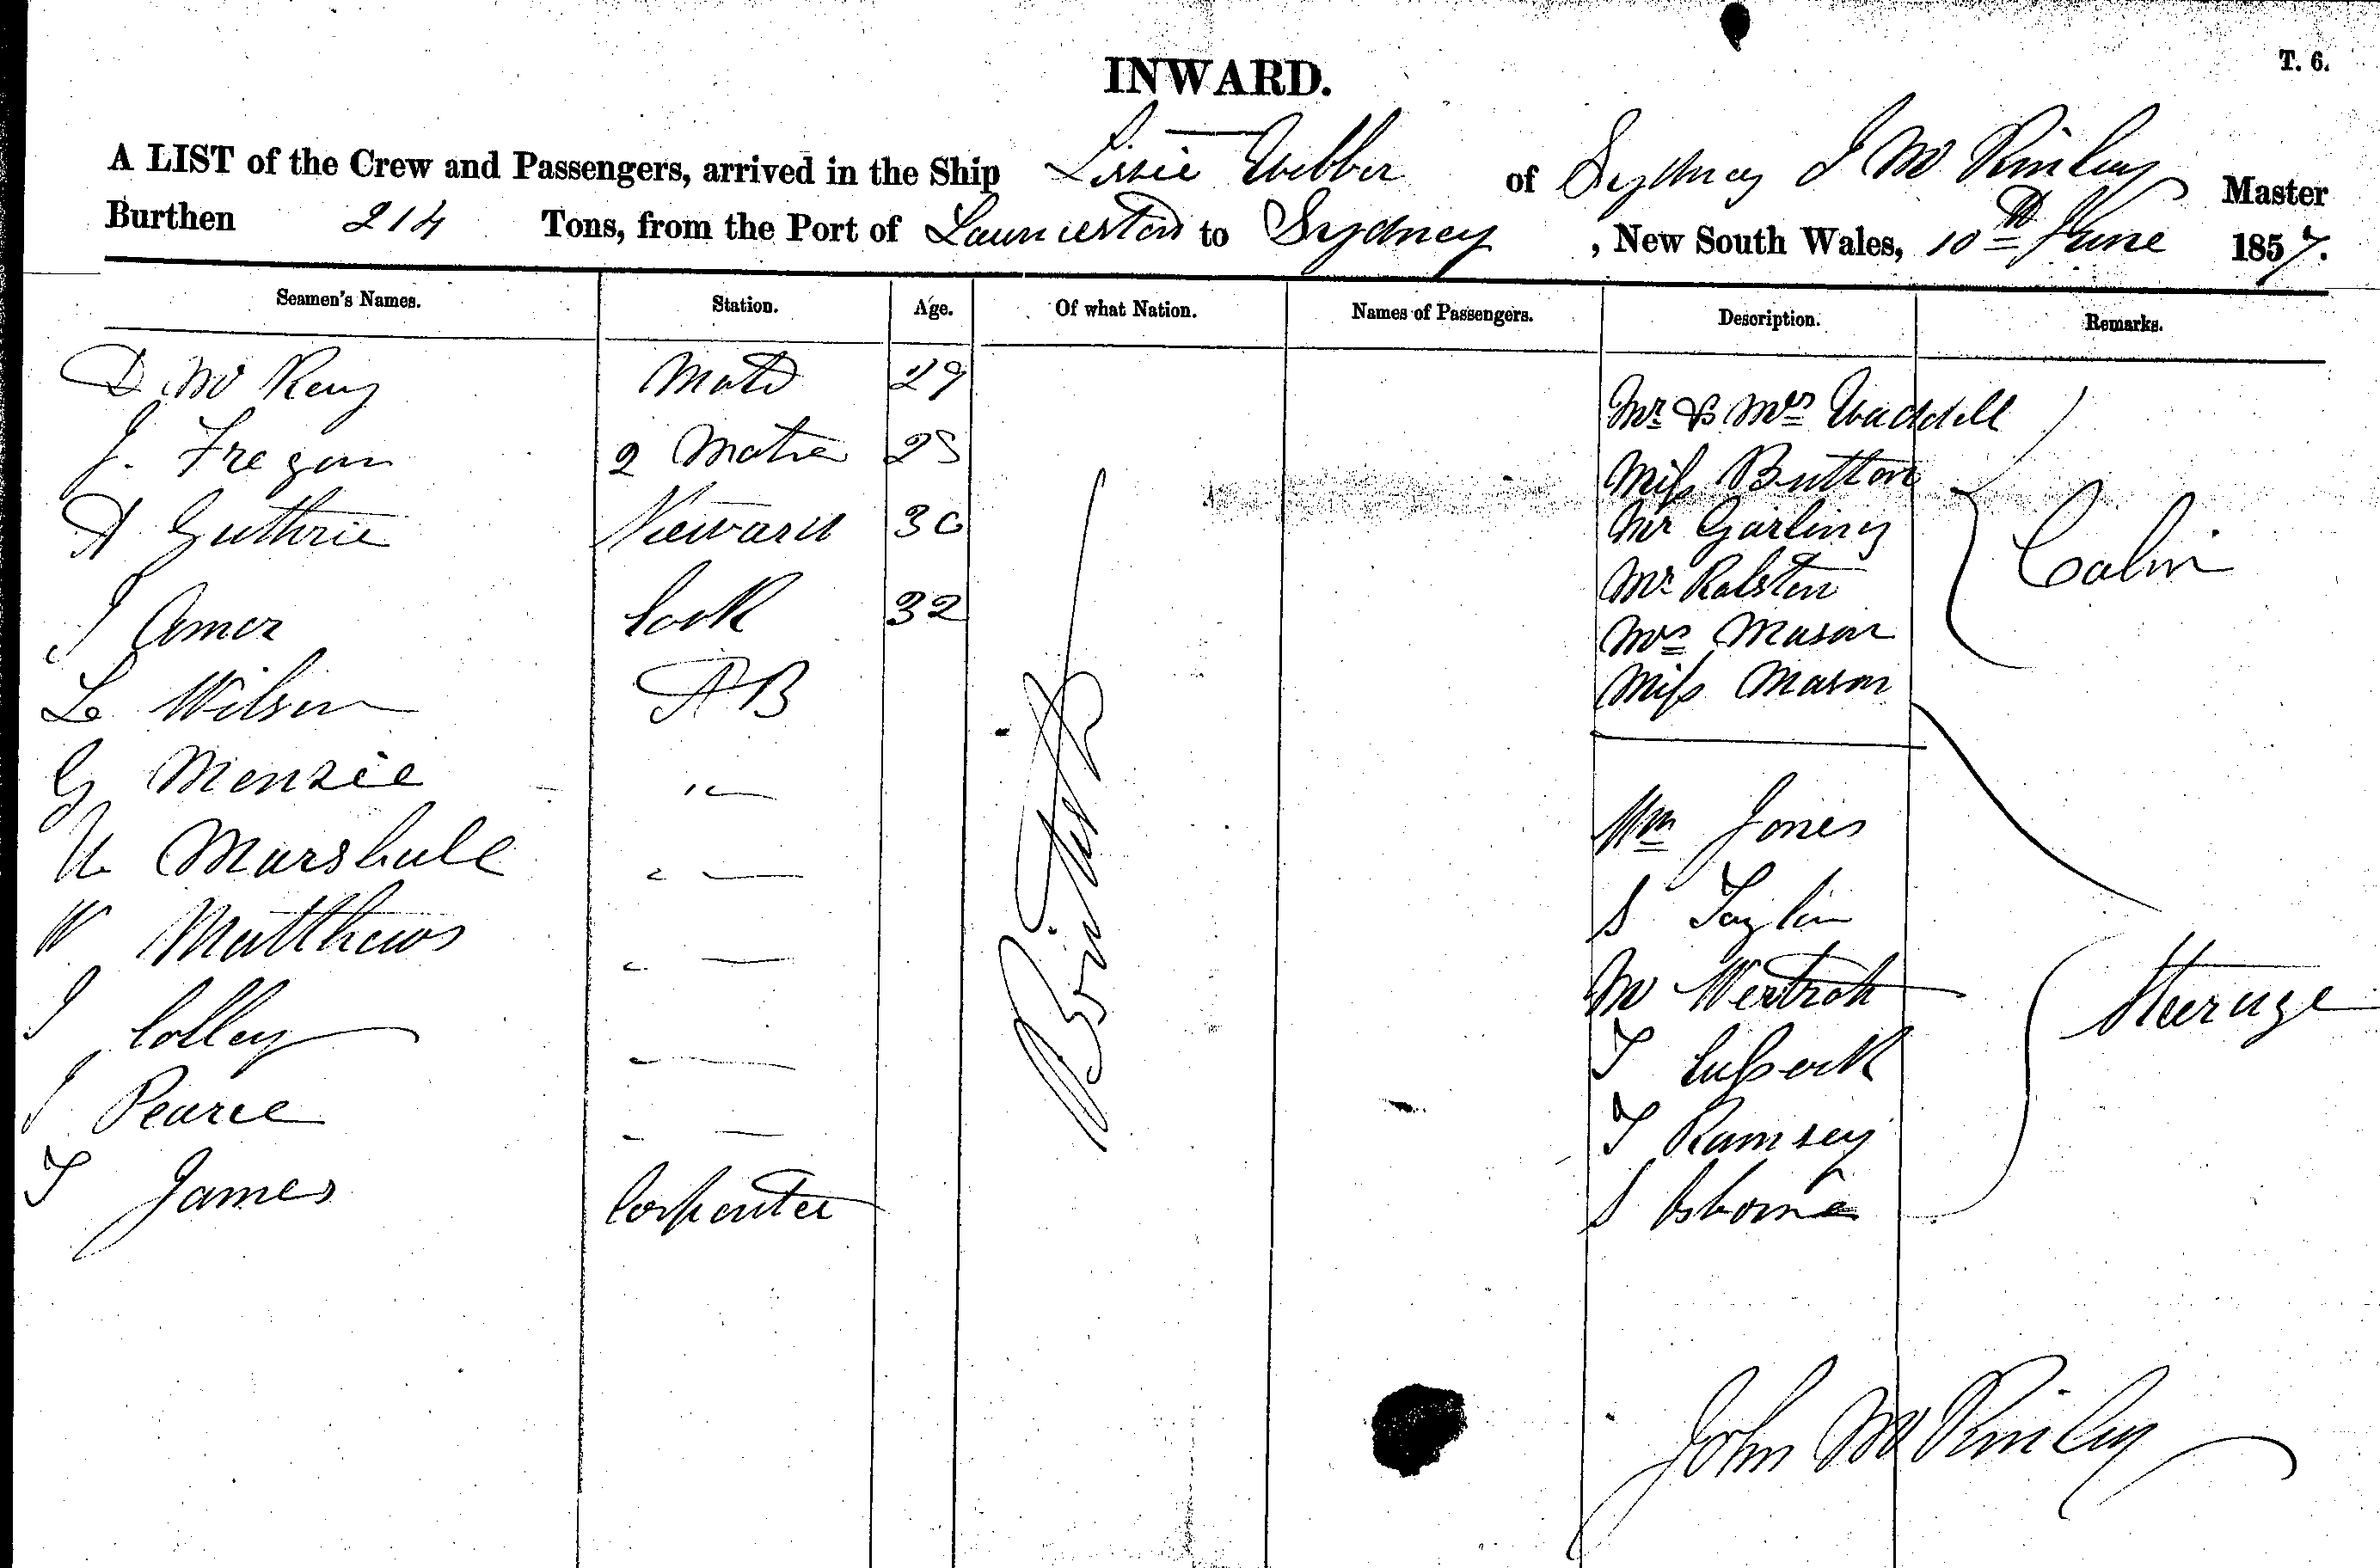 T. 6.
INWARD.
A LIST of the Crew and Passengers, arrived in the Ship Lissie Webber of Sydney J Mc Kinlay Master
Burthen 214 Tons, from the Port of Launceston to Sydney, New South Wales, 10th June 1857.
Seamen's Names. Station. Age. Of what Nation. Names of Passengers. Description. Remarks.
D Mc Kay Mate 29 Mr & Mrs Waddell
J. Fregan 2 Mate 25 Miss Button
A Guthrie Steward 30 Mr Garling
J Amer Cook 32 Mr Ralston Cabin
L Wilson AB Mrs Mason
Miss Mason
G Menzie "
Wm Jones
Marshall "
W Matthews " S Taylor
British
J Colley " M Steerage
J Pearce " T
T James Carpenter T Ramsey
S Osborne
John Mc Kinlay